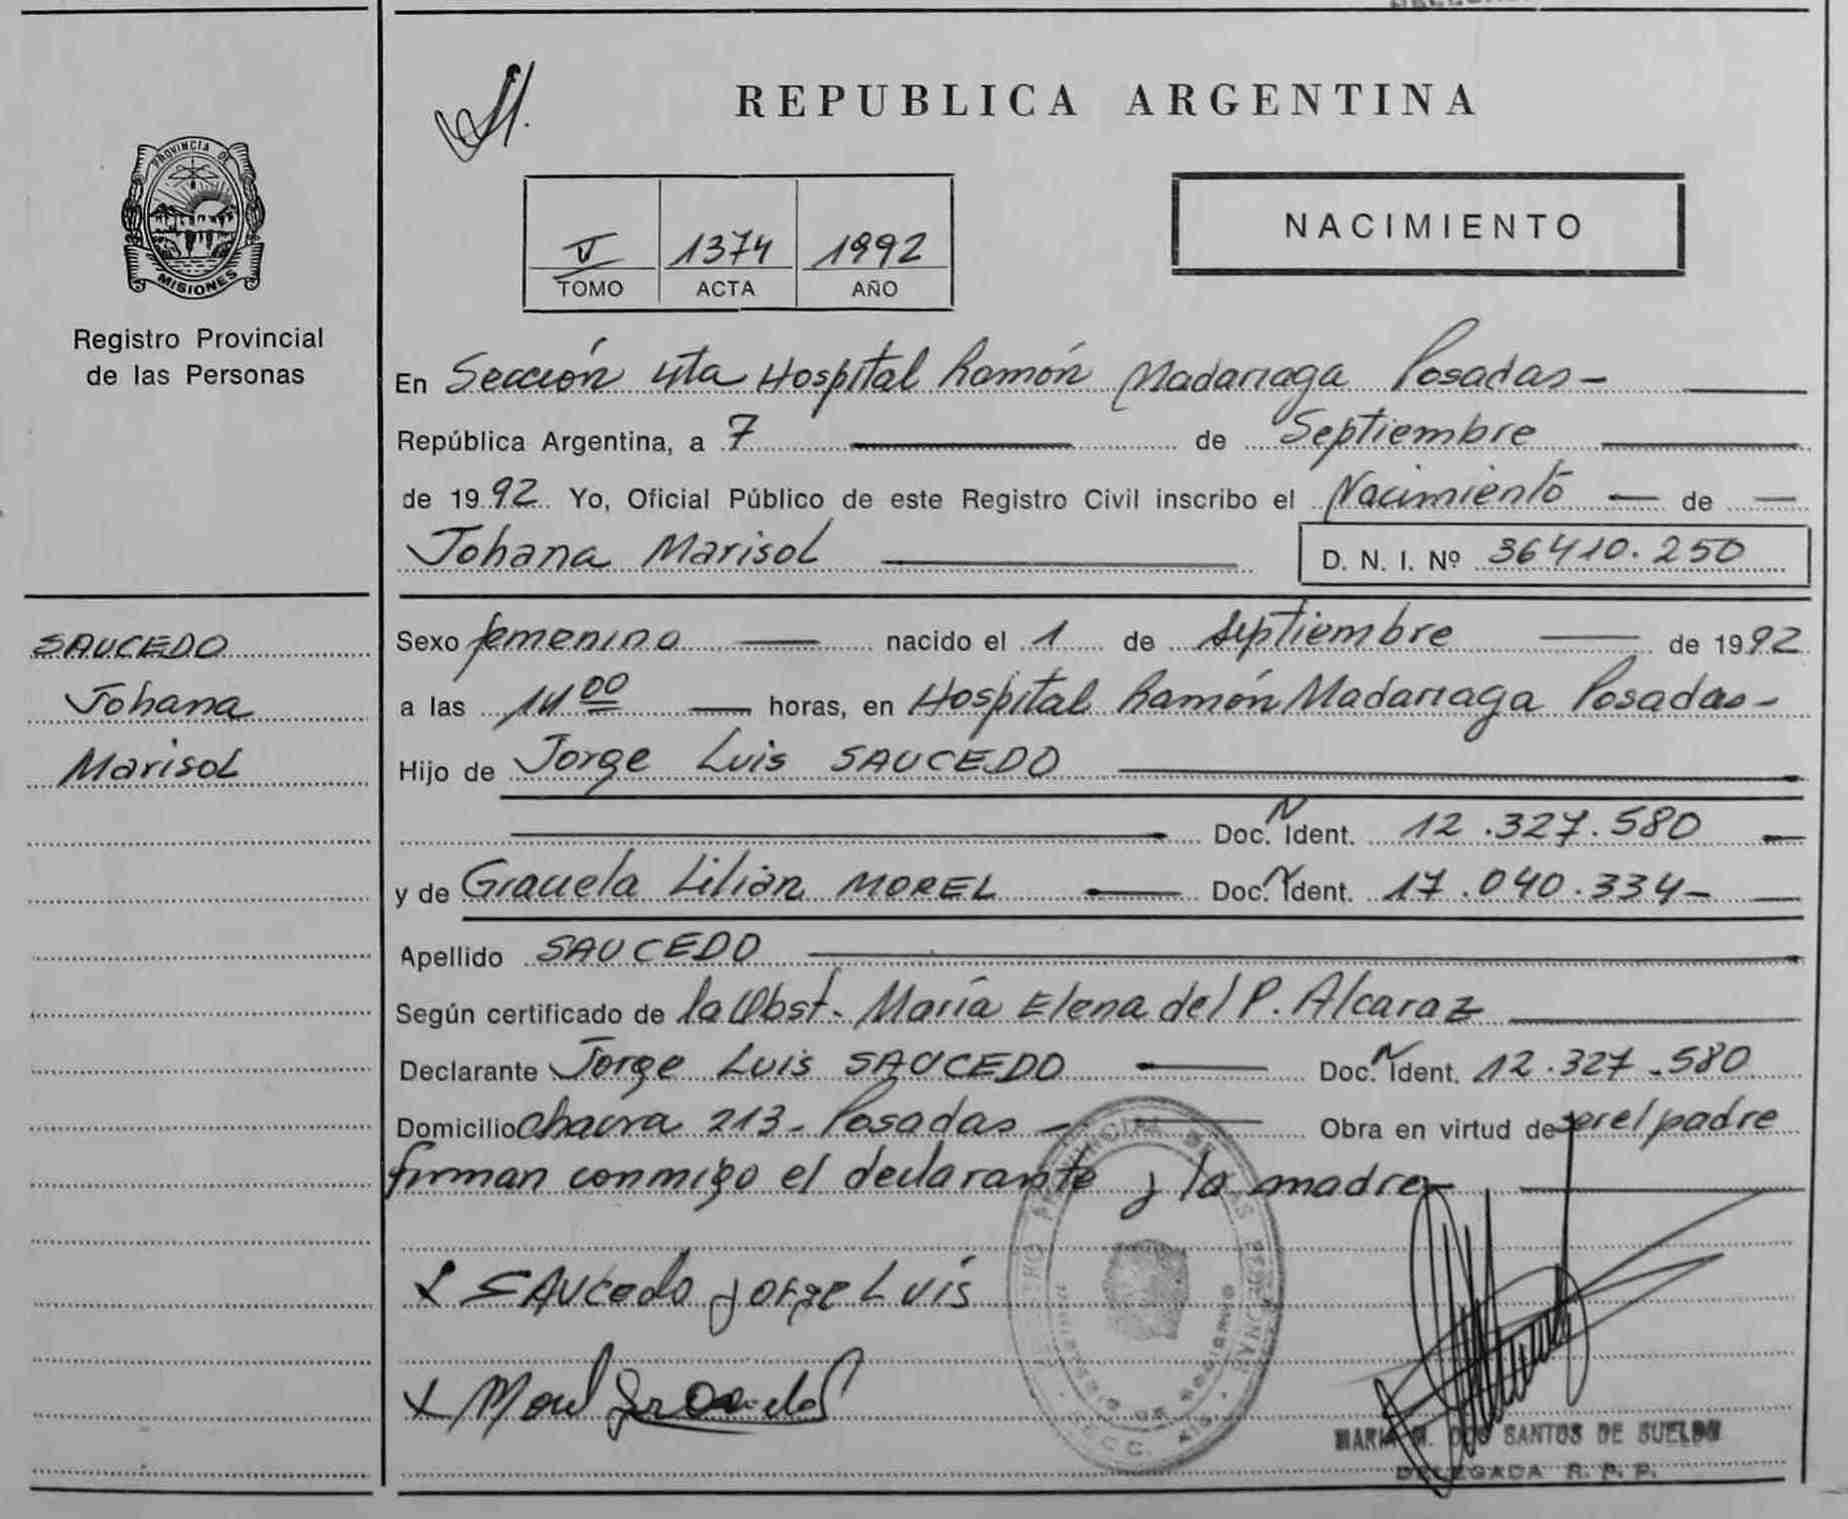 REPUBLICA ARGENTINA
PROVINCIA DE
MISIONES
Registro Provincial
de las Personas
V 1374 1992
TOMO ACTA AÑO
NACIMIENTO
En Sección 4ta Hospital Ramón Madariaga Posadas-
República Argentina, a 7 de Septiembre
de 1992 Yo, Oficial Público de este Registro Civil inscribo el Nacimiento de
Johana Marisol D. N. I. Nº 36410.250
SAUCEDO
Johana
Marisol
Sexo femenino nacido el 1 de septiembre de 1992
a las 14 00 horas, en Hospital Ramón Madariaga Posadas-
Hijo de Jorge Luis SAUCEDO
Doc. N Ident. 12.327.580
y de Graciela Lilian MOREL Doc. N Ident. 17.040.334-
Apellido SAUCEDO
Según certificado de la Obst. María Elena del P. Alcaraz
Declarante Jorge Luis SAUCEDO Doc. N Ident. 12.327.580
Domicilio Chacra 213- Posadas - Obra en virtud de ser el padre
firman conmigo el declarante y la madre-
x SAUcedo jorge Luis
x Morel Graciela
MARIA M. DOS SANTOS DE SUELDO
DELEGADA R. P. P.